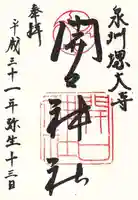 泉州堺大寺
開口神社
奉拝
平成三十一年弥生十三日